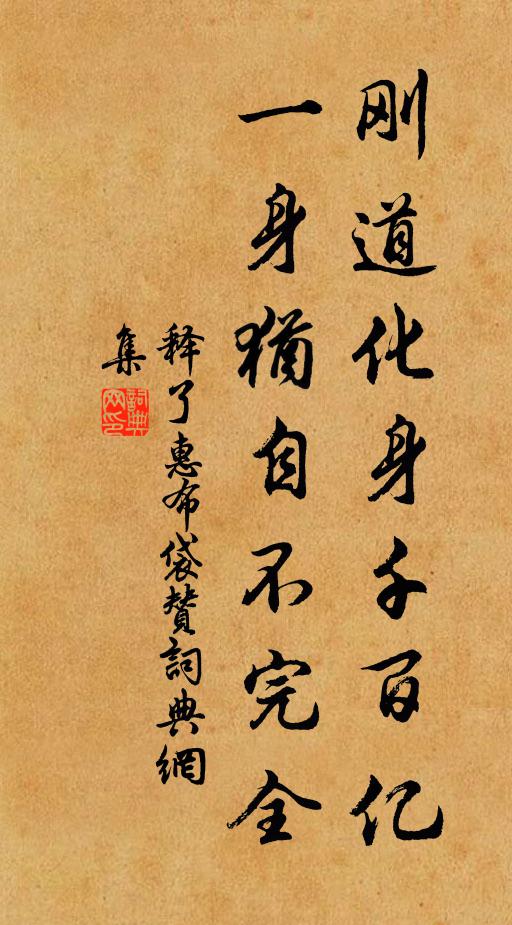 刚道化身千百亿
一身犹自不完全
释了惠布袋赞詞典網
集
詞典
网印